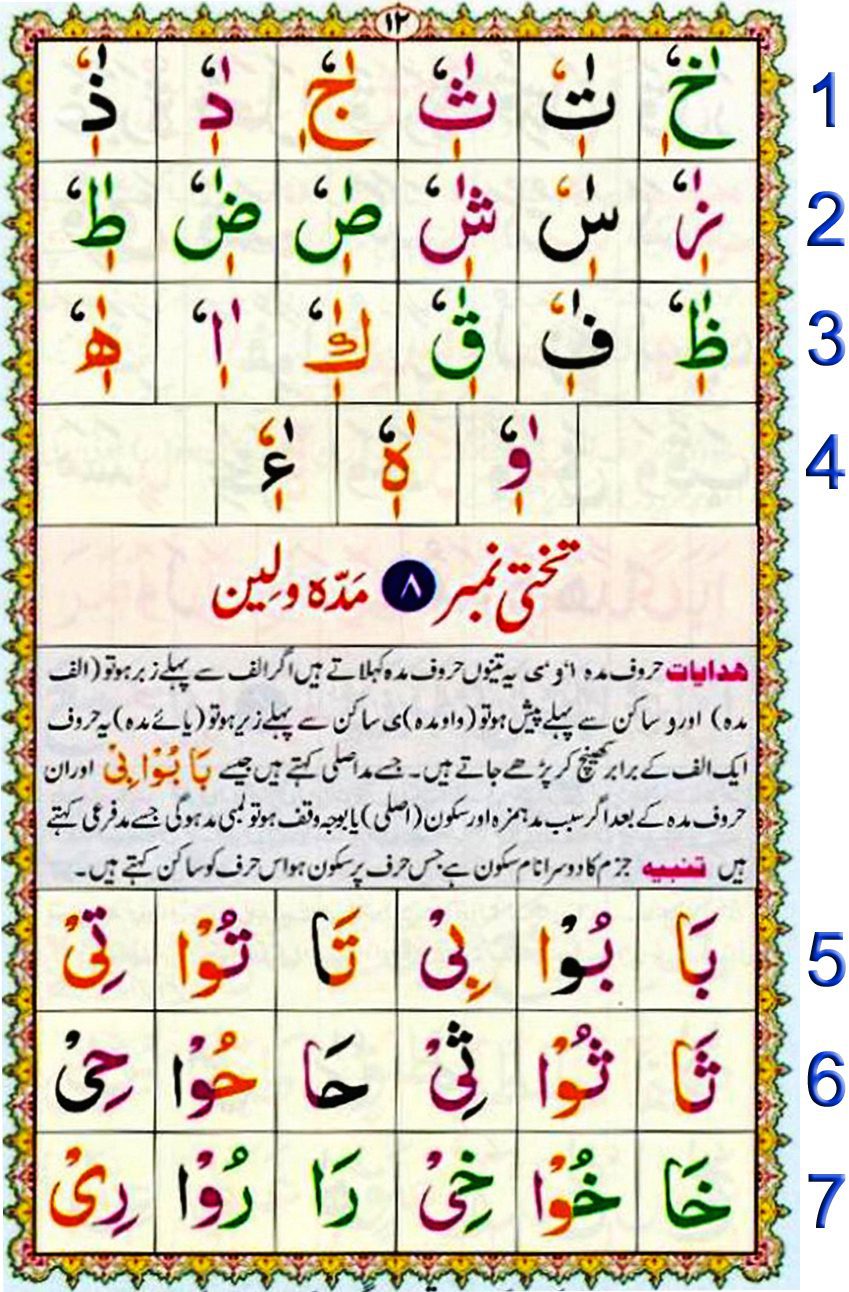 ١٢
1 خٰٖٗ تٰٖٗ ثٰٖٗ جٰٖٗ دٰٖٗ ذٰٖٗ
2 زٰٖٗ سٰٖٗ شٰٖٗ صٰٖٗ ضٰٖٗ طٰٖٗ
3 ظٰٖٗ فٰٖٗ قٰٖٗ كٰٖٗ اٰٖٗ ھٰٖٗ
4 وٰٖٗ ہٰٖٗ ءٰٖٗ
تختی نمبر ٨ مَدّہ و لِین
ھدایات حروف مدہ ا، و، ی یہ تینوں حروف مدہ کہلاتے ہیں اگر الف سے پہلے زبر ہو تو (الف
مدہ) اور و ساکن سے پہلے پیش ہو تو (واو مدہ) ی ساکن سے پہلے زیر ہو تو (یائے مدہ) یہ حروف
ایک الف کے برابر کھینچ کر پڑھے جاتے ہیں۔ جسے مد اصلی کہتے ہیں جیسے بَا بُوْا بِیْ اور ان
حروف مدہ کے بعد اگر سبب مد ہمزہ اور سکون (اصلی) یا بوجہ وقف ہو تو لمبی مد ہوگی جسے مد فرعی کہتے
ہیں تنبیہ جزم کا دوسرا نام سکون ہے جس حرف پر سکون ہو اس حرف کو ساکن کہتے ہیں۔
5 بَا بُوْا بِیْ تَا تُوْا تِیْ
6 ثَا ثُوْا ثِیْ حَا حُوْا حِیْ
7 خَا خُوْا خِیْ رَا رُوْا رِیْ